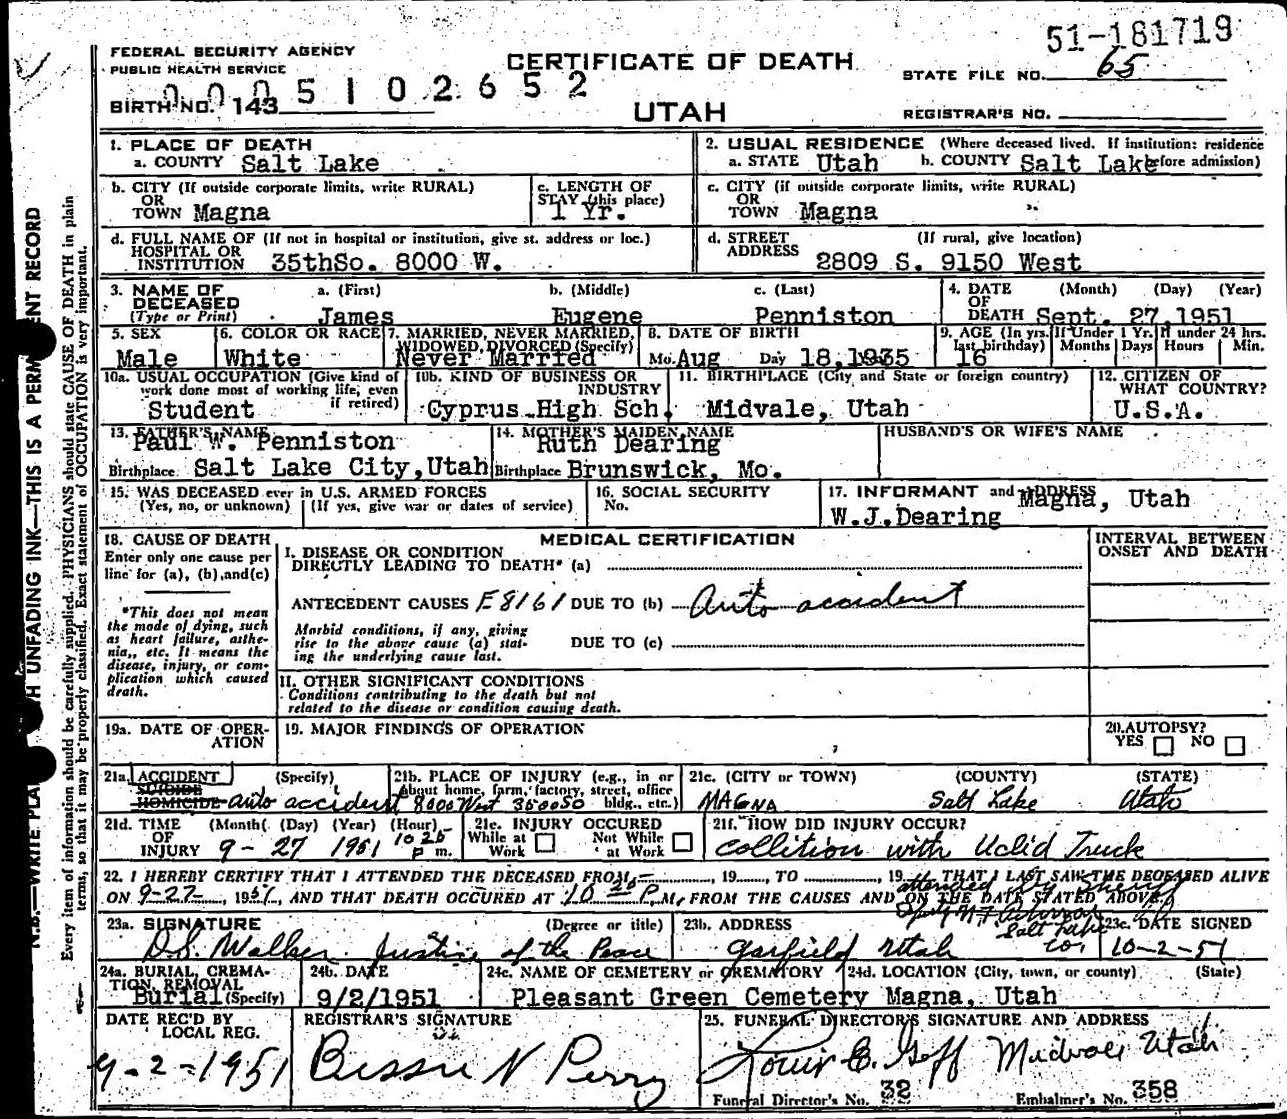 51-181719
FEDERAL SECURITY AGENCY
PUBLIC HEALTH SERVICE
CERTIFICATE OF DEATH
STATE FILE NO. 65
BIRTH NO. 143
0 0 0 5 1 0 2 6 5 2
UTAH
REGISTRAR'S NO.
1. PLACE OF DEATH
a. COUNTY Salt Lake
2. USUAL RESIDENCE (Where deceased lived. If institution: residence before admission)
a. STATE Utah b. COUNTY Salt Lake
b. CITY (If outside corporate limits, write RURAL)
OR
TOWN Magna
c. LENGTH OF
STAY (this place)
1 Yr.
c. CITY (if outside corporate limits, write RURAL)
OR
TOWN Magna
d. FULL NAME OF (If not in hospital or institution, give st. address or loc.)
HOSPITAL OR
INSTITUTION 35thSo. 8000 W.
d. STREET (If rural, give location)
ADDRESS 2809 S. 9150 West
3. NAME OF DECEASED
(Type or Print)
a. (First) b. (Middle) c. (Last)
James Eugene Penniston
4. DATE OF DEATH (Month) (Day) (Year)
Sept. 27, 1951
5. SEX
Male
6. COLOR OR RACE
White
7. MARRIED, NEVER MARRIED,
WIDOWED, DIVORCED (Specify)
Never Married
8. DATE OF BIRTH
Mo. Aug Day 18, 1935
9. AGE (In yrs. last birthday)
16
If Under 1 Yr. Months Days
If under 24 hrs. Hours Min.
10a. USUAL OCCUPATION (Give kind of
work done most of working life, even
if retired)
Student
10b. KIND OF BUSINESS OR
INDUSTRY
Cyprus High Sch.
11. BIRTHPLACE (City and State or foreign country)
Midvale, Utah
12. CITIZEN OF
WHAT COUNTRY?
U.S.A.
13. FATHER'S NAME
Paul W. Penniston
Birthplace Salt Lake City, Utah
14. MOTHER'S MAIDEN NAME
Ruth Dearing
Birthplace Brunswick, Mo.
HUSBAND'S OR WIFE'S NAME
15. WAS DECEASED ever in U.S. ARMED FORCES
(Yes, no, or unknown) (If yes, give war or dates of service)
16. SOCIAL SECURITY
No.
17. INFORMANT and ADDRESS
Magna, Utah
W.J.Dearing
18. CAUSE OF DEATH
Enter only one cause per
line for (a), (b), and(c)
*This does not mean
the mode of dying, such
as heart failure, asthe-
nia,, etc. It means the
disease, injury, or com-
plication which caused
death.
MEDICAL CERTIFICATION
INTERVAL BETWEEN
ONSET AND DEATH
I. DISEASE OR CONDITION
DIRECTLY LEADING TO DEATH* (a)
ANTECEDENT CAUSES E8161 DUE TO (b) Auto accident
Morbid conditions, if any, giving
rise to the above cause (a) stat-
ing the underlying cause last.
DUE TO (c)
II. OTHER SIGNIFICANT CONDITIONS
Conditions contributing to the death but not
related to the disease or condition causing death.
19a. DATE OF OPER-
ATION
19. MAJOR FINDINGS OF OPERATION
20. AUTOPSY?
YES NO
21a. ACCIDENT (Specify)
SUICIDE
HOMICIDE auto accident
21b. PLACE OF INJURY (e.g., in or
about home, farm, factory, street, office
bldg., etc.)
8000 West 3500 So
21c. (CITY or TOWN) (COUNTY) (STATE)
MAGNA Salt Lake Utah
21d. TIME OF INJURY (Month) (Day) (Year) (Hour)
9-27 1951 10 25 p m.
21e. INJURY OCCURED
While at Work Not While at Work
21f. HOW DID INJURY OCCUR?
Collition with Uclid Truck
22. I HEREBY CERTIFY THAT I ATTENDED THE DECEASED FROM, 19, TO, 19 THAT I LAST SAW THE DECEASED ALIVE
ON 9-27, 1951, AND THAT DEATH OCCURED AT 10 25 P. M, FROM THE CAUSES AND ON THE DATE STATED ABOVE.
attended by Sheriff
Salt Lake
Co.
23a. SIGNATURE (Degree or title)
D.S. Walker Justice of the Peace
23b. ADDRESS
Garfield Utah
23c. DATE SIGNED
10-2-51
24a. BURIAL, CREMA-
TION, REMOVAL
Burial (Specify)
24b. DATE
9/2/1951
24c. NAME OF CEMETERY or CREMATORY
24d. LOCATION (City, town, or county) (State)
Pleasant Green Cemetery Magna, Utah
DATE REC'D BY
LOCAL REG.
9-2-1951
REGISTRAR'S SIGNATURE
Bessie N Perry
25. FUNERAL DIRECTOR'S SIGNATURE AND ADDRESS
Louis E. Goff Midvale Utah
Funeral Director's No. 32 Embalmer's No. 358
N.B.—WRITE PLAINLY WITH UNFADING INK—THIS IS A PERMANENT RECORD
Every item of information should be carefully supplied. PHYSICIANS should state CAUSE OF DEATH in plain
terms, so that it may be properly classified. Exact statement of OCCUPATION is very important.